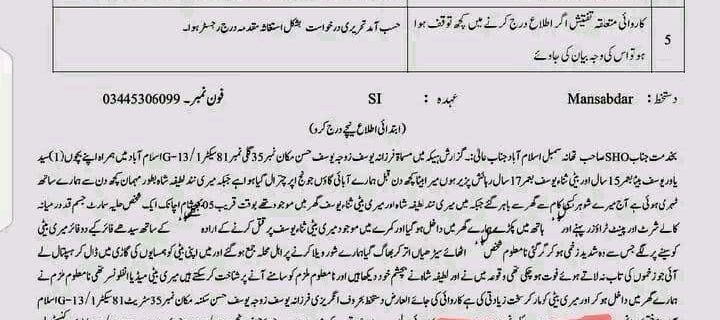 5 کاروائی متعلقہ تفتیش اگر اطلاع درج کرنے میں کچھ توقف ہوا ہو تو اس کی وجہ بیان کی جاوئے
حسب آمد تحریری درخواست بشکل استغاثہ مقدمہ درج رجسٹر ہوا۔
دستخط: Mansabdar عہدہ : SI فون نمبر۔ 03445306099
(ابتدائی اطلاع نیچے درج کرو)
بخدمت جناب SHO صاحب تھانہ سمبل اسلام آباد جناب عالیٰ:۔ گزارش ہیکہ میں مسماۃ فرزانہ یوسف زوجہ یوسف حسن مکان نمبر 35 گلی نمبر 81 سیکٹر G-13/1 اسلام آباد میں ہمراہ اپنے بچوں (1) سید
یاور یوسف بیٹا بعمر 15 سال اور بیٹی ثناء یوسف بعمر 17 سال رہائش پزیر ہوں میرا بیٹا کچھ دن قبل ہمارے آبائی گاؤں جونج اپر چترال گیا ہوا ہے جبکہ میری نند لطیفہ شاہ بطور مہمان کچھ دن سے ہمارے ساتھ
ٹھہری ہوئی ہے آج میرے شوہر کسی کام سے گھر سے باہر گئے جبکہ میں میری نند لطیفہ شاہ اور میری بیٹی ثناء یوسف گھر میں موجود تھے بوقت قریب 05 بجے شام اچانک ایک شخص حلیہ سمارٹ جسم قدر میانہ
کالے شرٹ اور پینٹ ٹراؤزر پہنے اور ہاتھ میں پکڑے ہمارے گھر میں داخل ہوا اور کمرے میں موجود میری بیٹی ثناء یوسف پر قتل کرنے کے ارادہ کے ساتھ سیدھے فائر کیے دو فائر میری بیٹی
کو سینے پر لگے جس سے وہ شدید زخمی ہو کر گر گئی نامعلوم شخص اٹھائے سیڑھیاں اتر کر بھاگ گیا ہمارے شور ویلا کرنے پر اہل محلہ جمع ہو گئے اور میں اپنی بیٹی کو ہمسایوں کی گاڑی میں ڈال کر ہسپتال لے
آئی جو زخموں کی تاب نہ لاتے ہوئے فوت ہو چکی تھی وقوعہ میں نے اور لطیفہ شاہ نے بچشم خود دیکھا ہیں اور نامعلوم ملزم کو سامنے آنے پر شناخت کر سکتے ہیں میری بیٹی میڈیا انفلونسر تھی نامعلوم ملزم نے
ہمارے گھر میں داخل ہو کر اور میری بیٹی کو مار کر سخت زیادتی کی ہے کاروائی کی جائے العارض دستخط بحروف انگریزی فرزانہ یوسف زوجہ یوسف حسن سکنہ مکان نمبر 35 سٹریٹ 81 سیکٹر G-13/1 اسلام